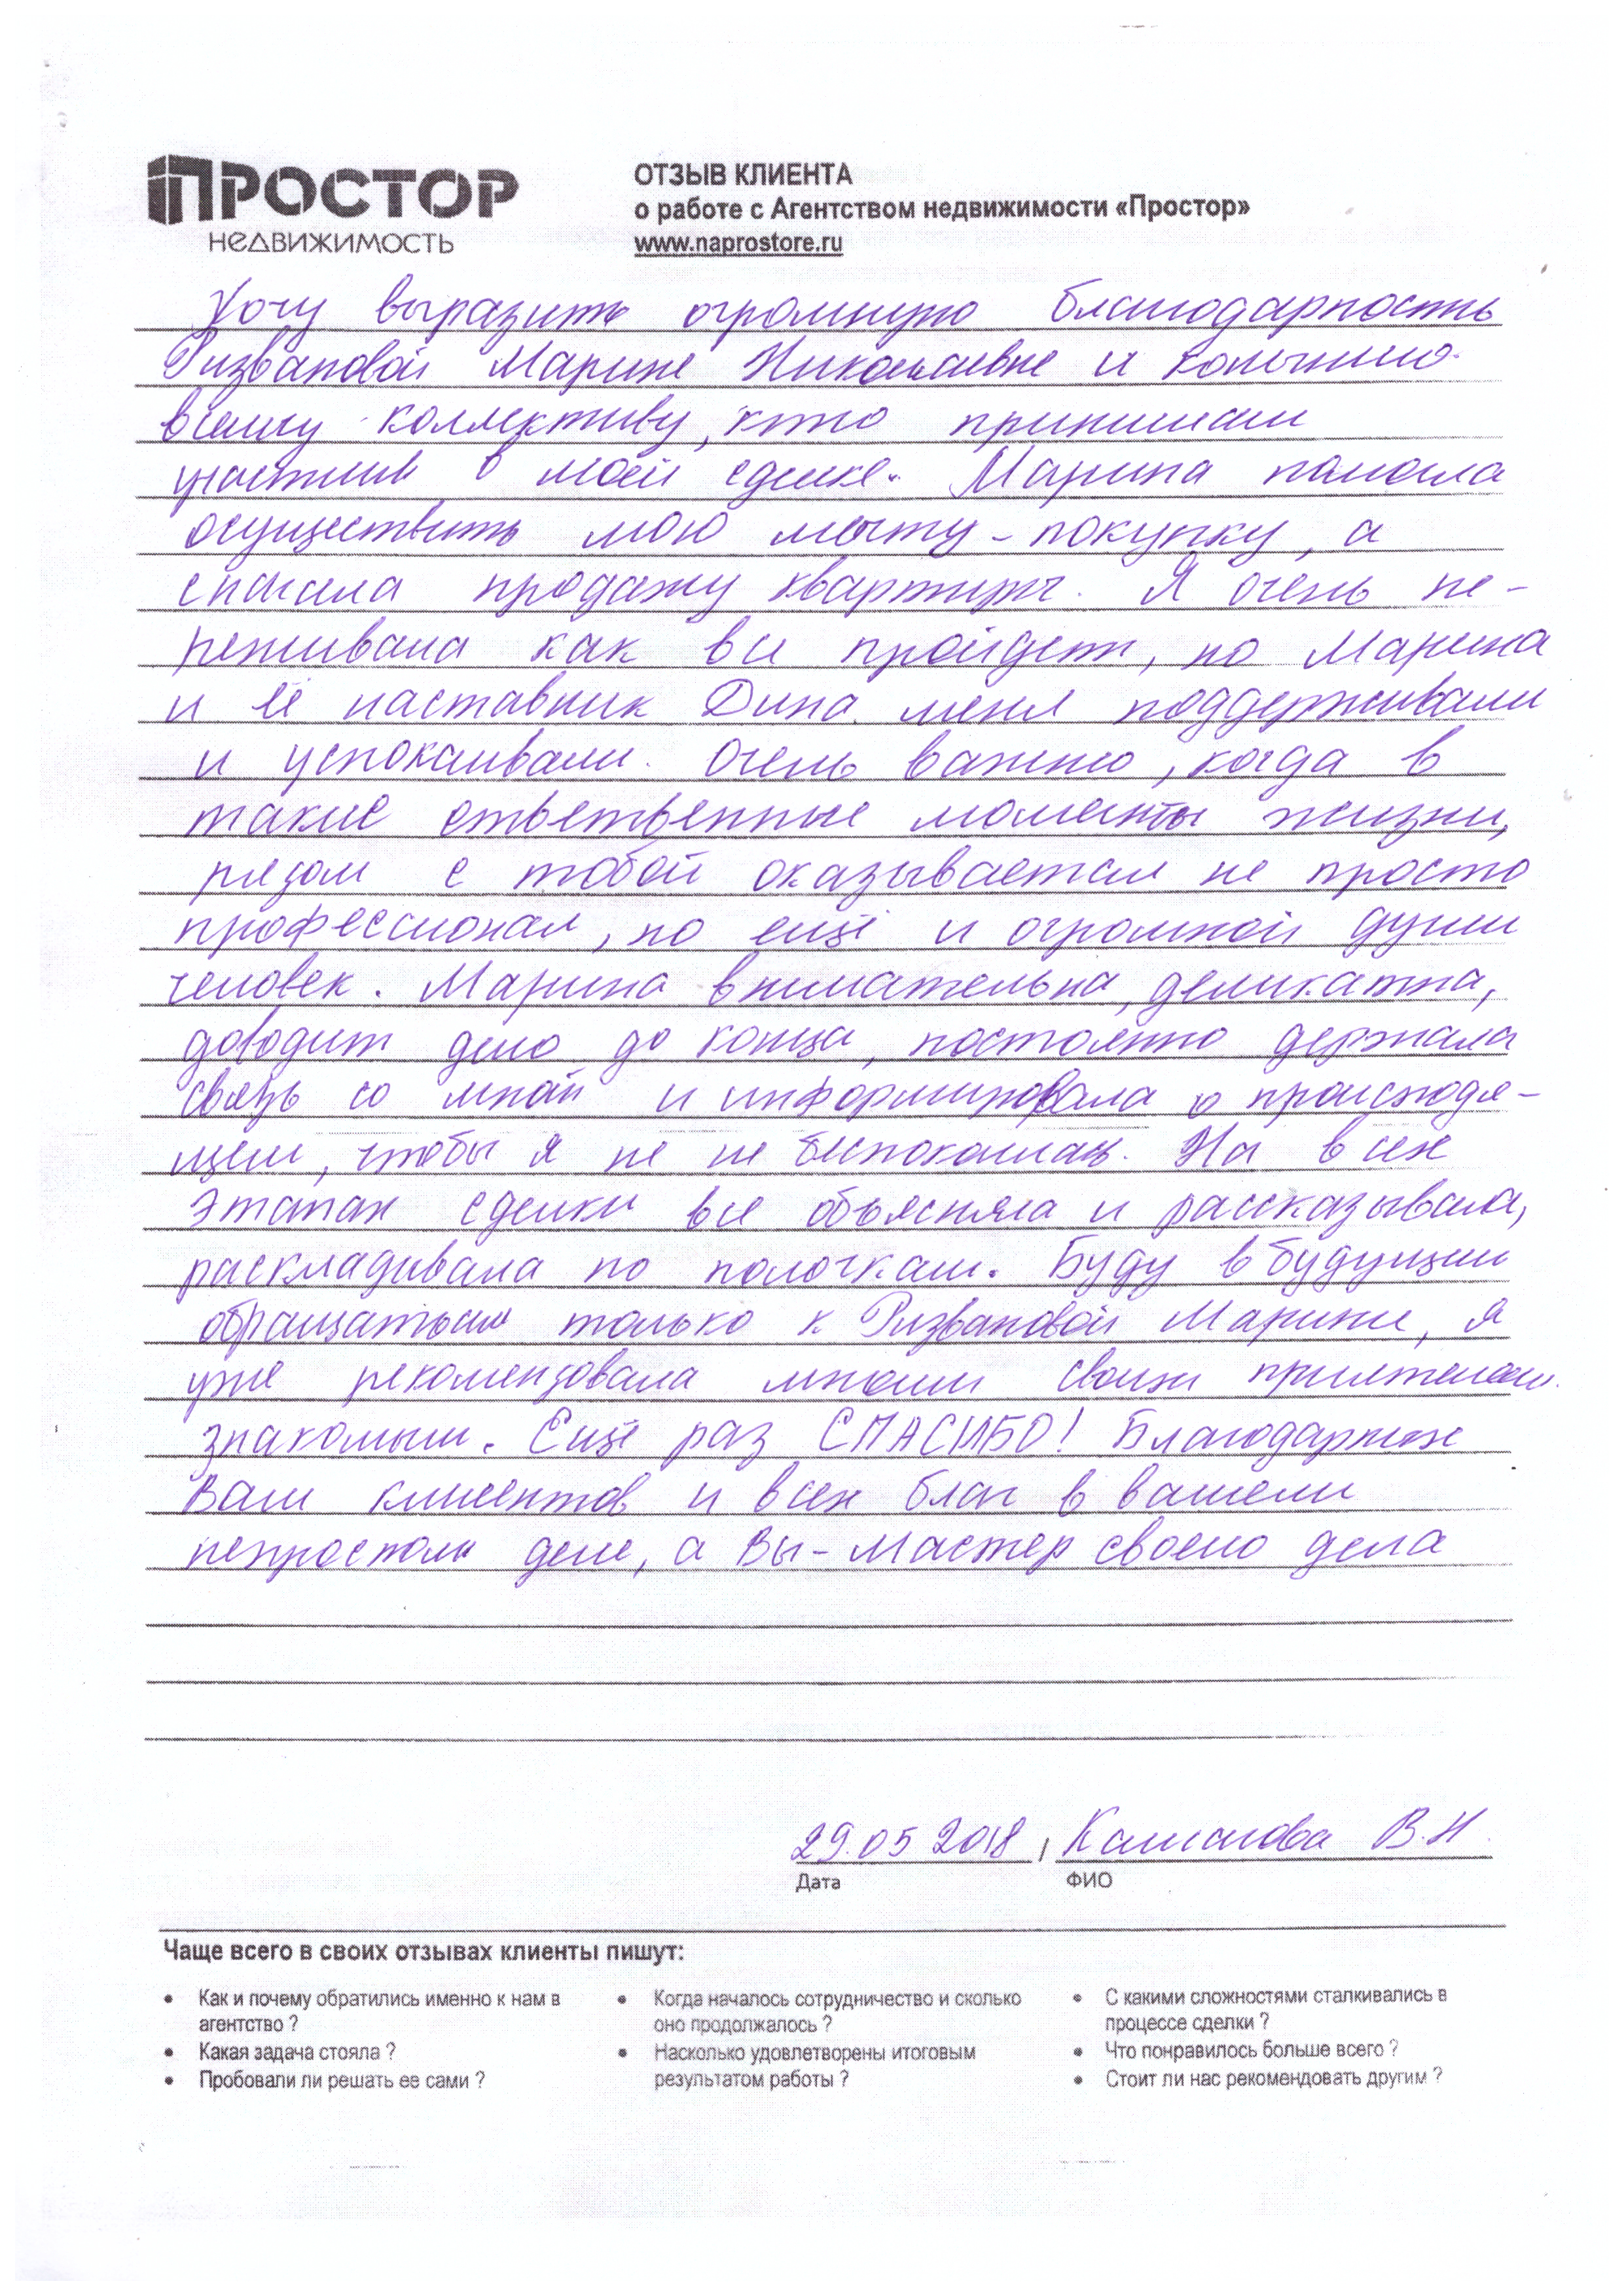 ПРОСТОР
НЕДВИЖИМОСТЬ
ОТЗЫВ КЛИЕНТА
о работе с Агентством недвижимости «Простор»
www.naprostore.ru
Хочу выразить огромную благодарность
Ризвановой Марине Николаевне и конечно
всему коллективу, кто принимал
участие в моей сделке. Марина помогла
осуществить мою мечту - покупку, а
сначала продажу квартиры. Я очень пе-
реживала как все пройдет, но Марина
и её наставник Дина меня поддерживали
и успокаивали. Очень важно, когда в
такие ответственные моменты жизни,
рядом с тобой оказывается не просто
профессионал, но ещё и огромной души
человек. Марина внимательна, деликатна,
доводит дело до конца, постоянно держала
связь со мной и информировала о происходя-
щем, чтобы я не не беспокоилась. На всех
этапах сделки все объясняла и рассказывала,
раскладывала по полочкам. Буду в будущем
обращаться только к Ризвановой Марине, я
уже рекомендовала многим своим приятелям.
знакомым. Ещё раз СПАСИБО! Благодарных
Вам клиентов и всех благ в вашем
непростом деле, а Вы - Мастер своего дела
29.05 2018 , В.Н.
Дата ФИО
Чаще всего в своих отзывах клиенты пишут:
• Как и почему обратились именно к нам в
агентство ?
• Какая задача стояла ?
• Пробовали ли решать ее сами ?
• Когда началось сотрудничество и сколько
оно продолжалось ?
• Насколько удовлетворены итоговым
результатом работы ?
• С какими сложностями сталкивались в
процессе сделки ?
• Что понравилось больше всего ?
• Стоит ли нас рекомендовать другим ?